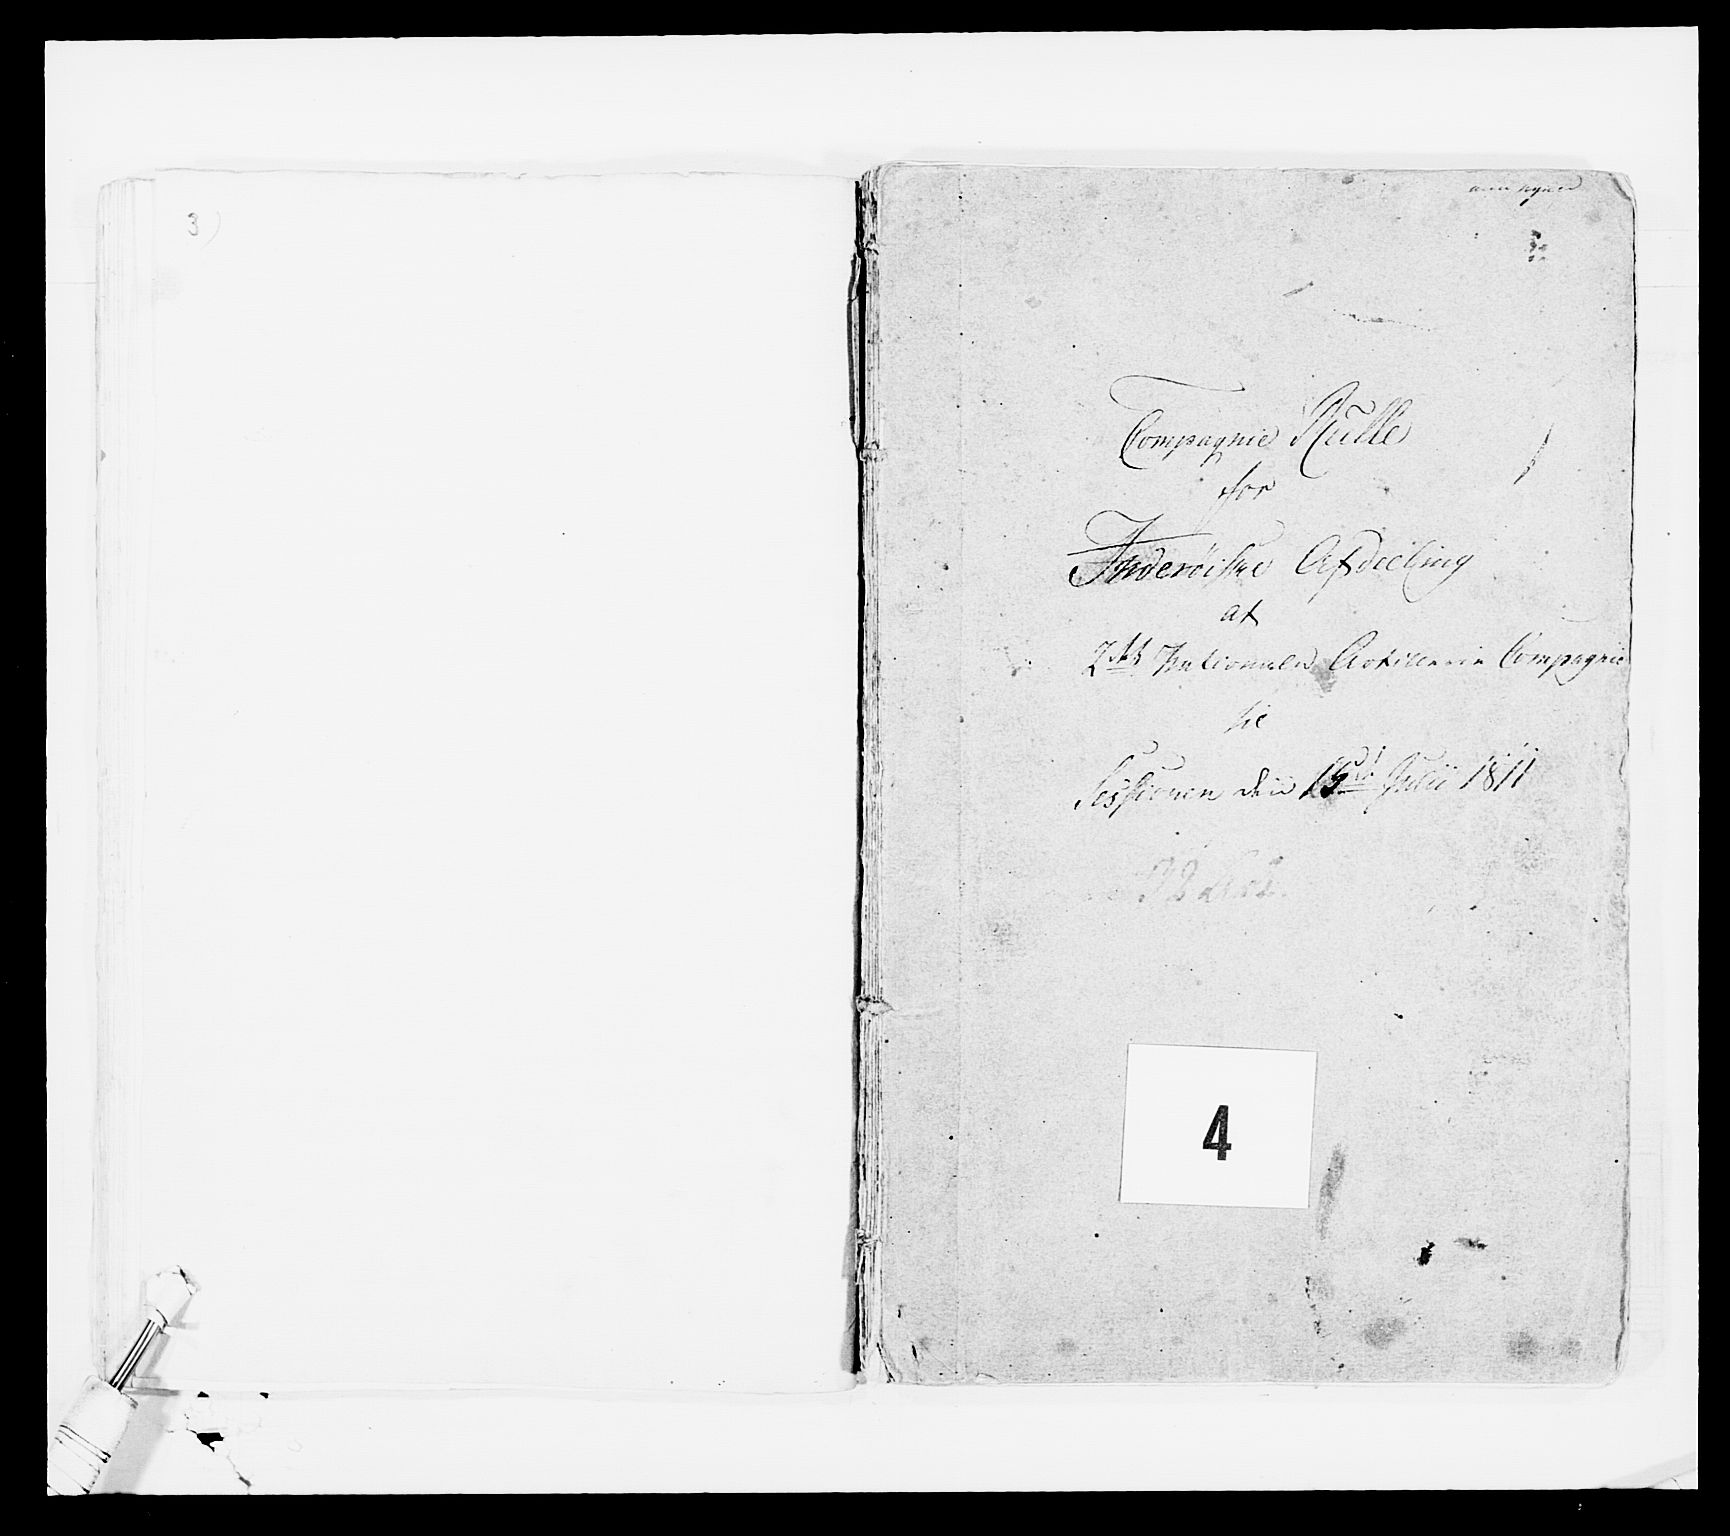 3)
Compagnie Rulle
for
Inderöiske Afdeeling
af
2det Nationale Artillerie Compagnie
til
Sessionen den 15de Julii 1811
4